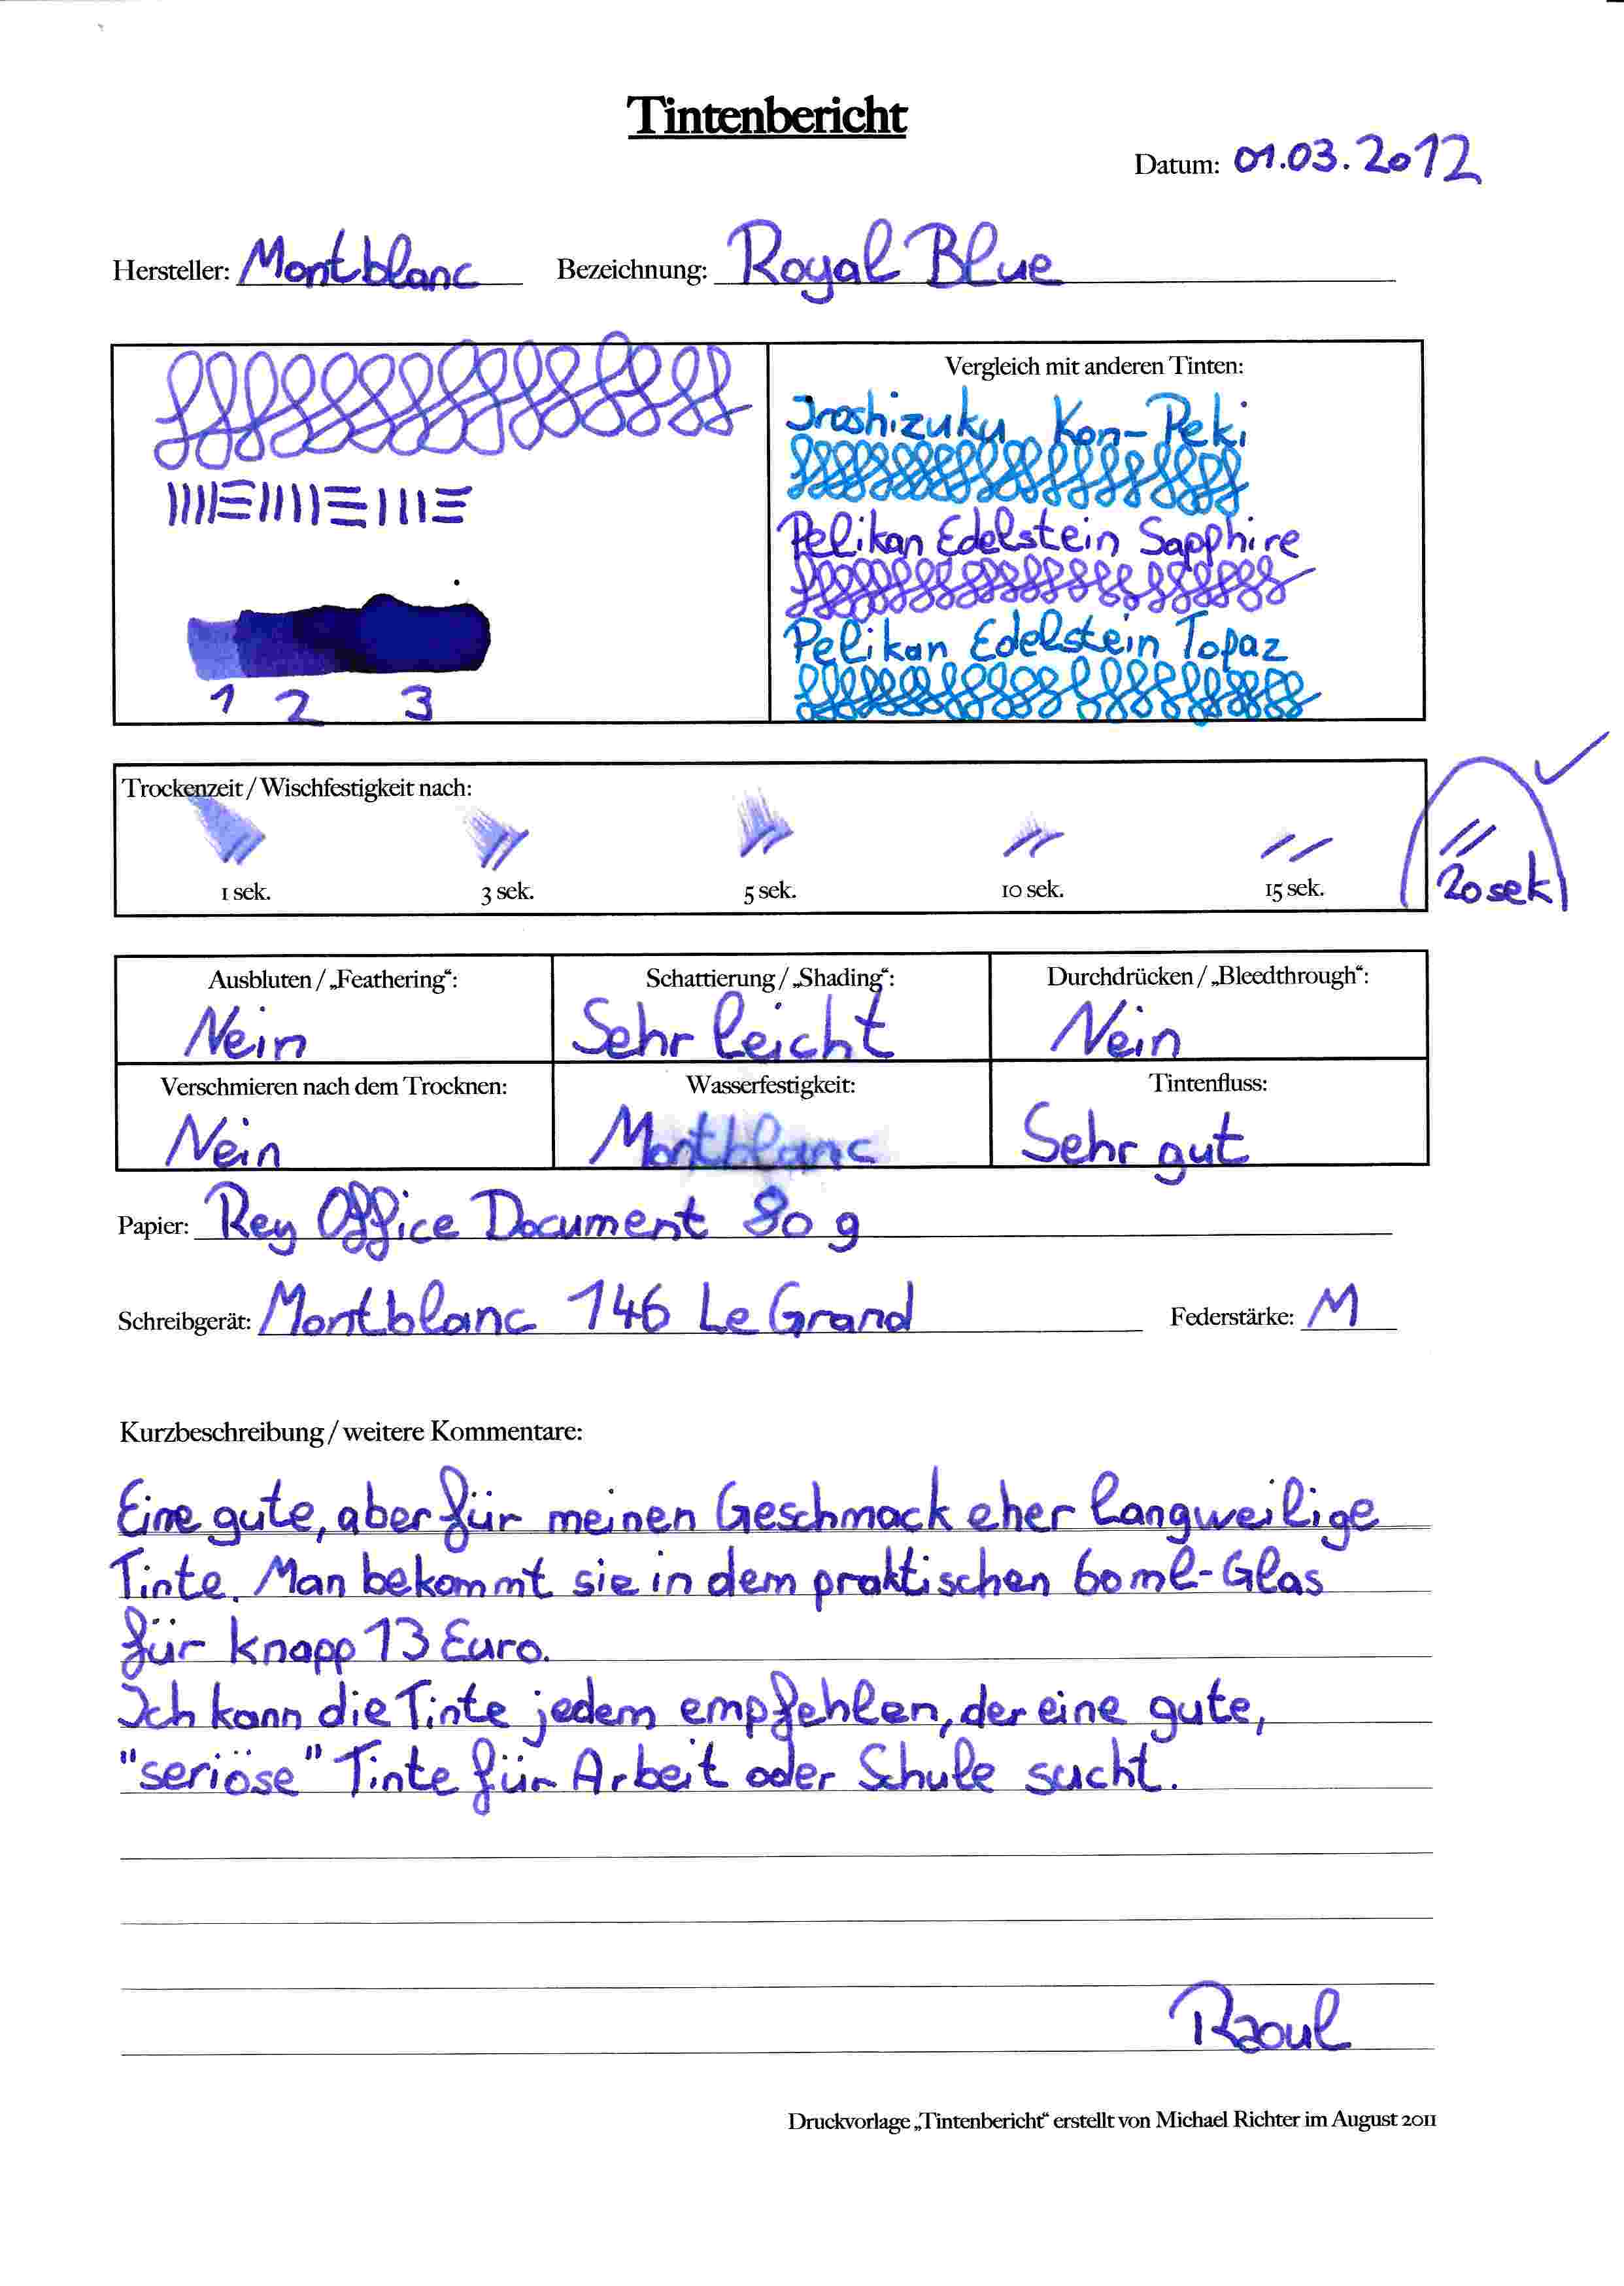 Tintenbericht
Datum: 01.03.2012
Hersteller: Montblanc Bezeichnung: Royal Blue
Vergleich mit anderen Tinten:
Iroshizuku Kon-Peki
Pelikan Edelstein Sapphire
Pelikan Edelstein Topaz
1 2 3
Trockenzeit / Wischfestigkeit nach:
1 sek. 3 sek. 5 sek. 10 sek. 15 sek. 20 sek
Ausbluten / „Feathering“: Schattierung / „Shading“: Durchdrücken / „Bleedthrough“:
Nein Sehr leicht Nein
Verschmieren nach dem Trocknen: Wasserfestigkeit: Tintenfluss:
Nein Montblanc Sehr gut
Papier: Rey Office Document 80 g
Schreibgerät: Montblanc 146 Le Grand Federstärke: M
Kurzbeschreibung / weitere Kommentare:
Eine gute, aber für meinen Geschmack eher langweilige
Tinte. Man bekommt sie in dem praktischen 60ml-Glas
für knapp 13 Euro.
Ich kann die Tinte jedem empfehlen, der eine gute,
"seriöse" Tinte für Arbeit oder Schule sucht.
Raoul
Druckvorlage „Tintenbericht“ erstellt von Michael Richter im August 2011